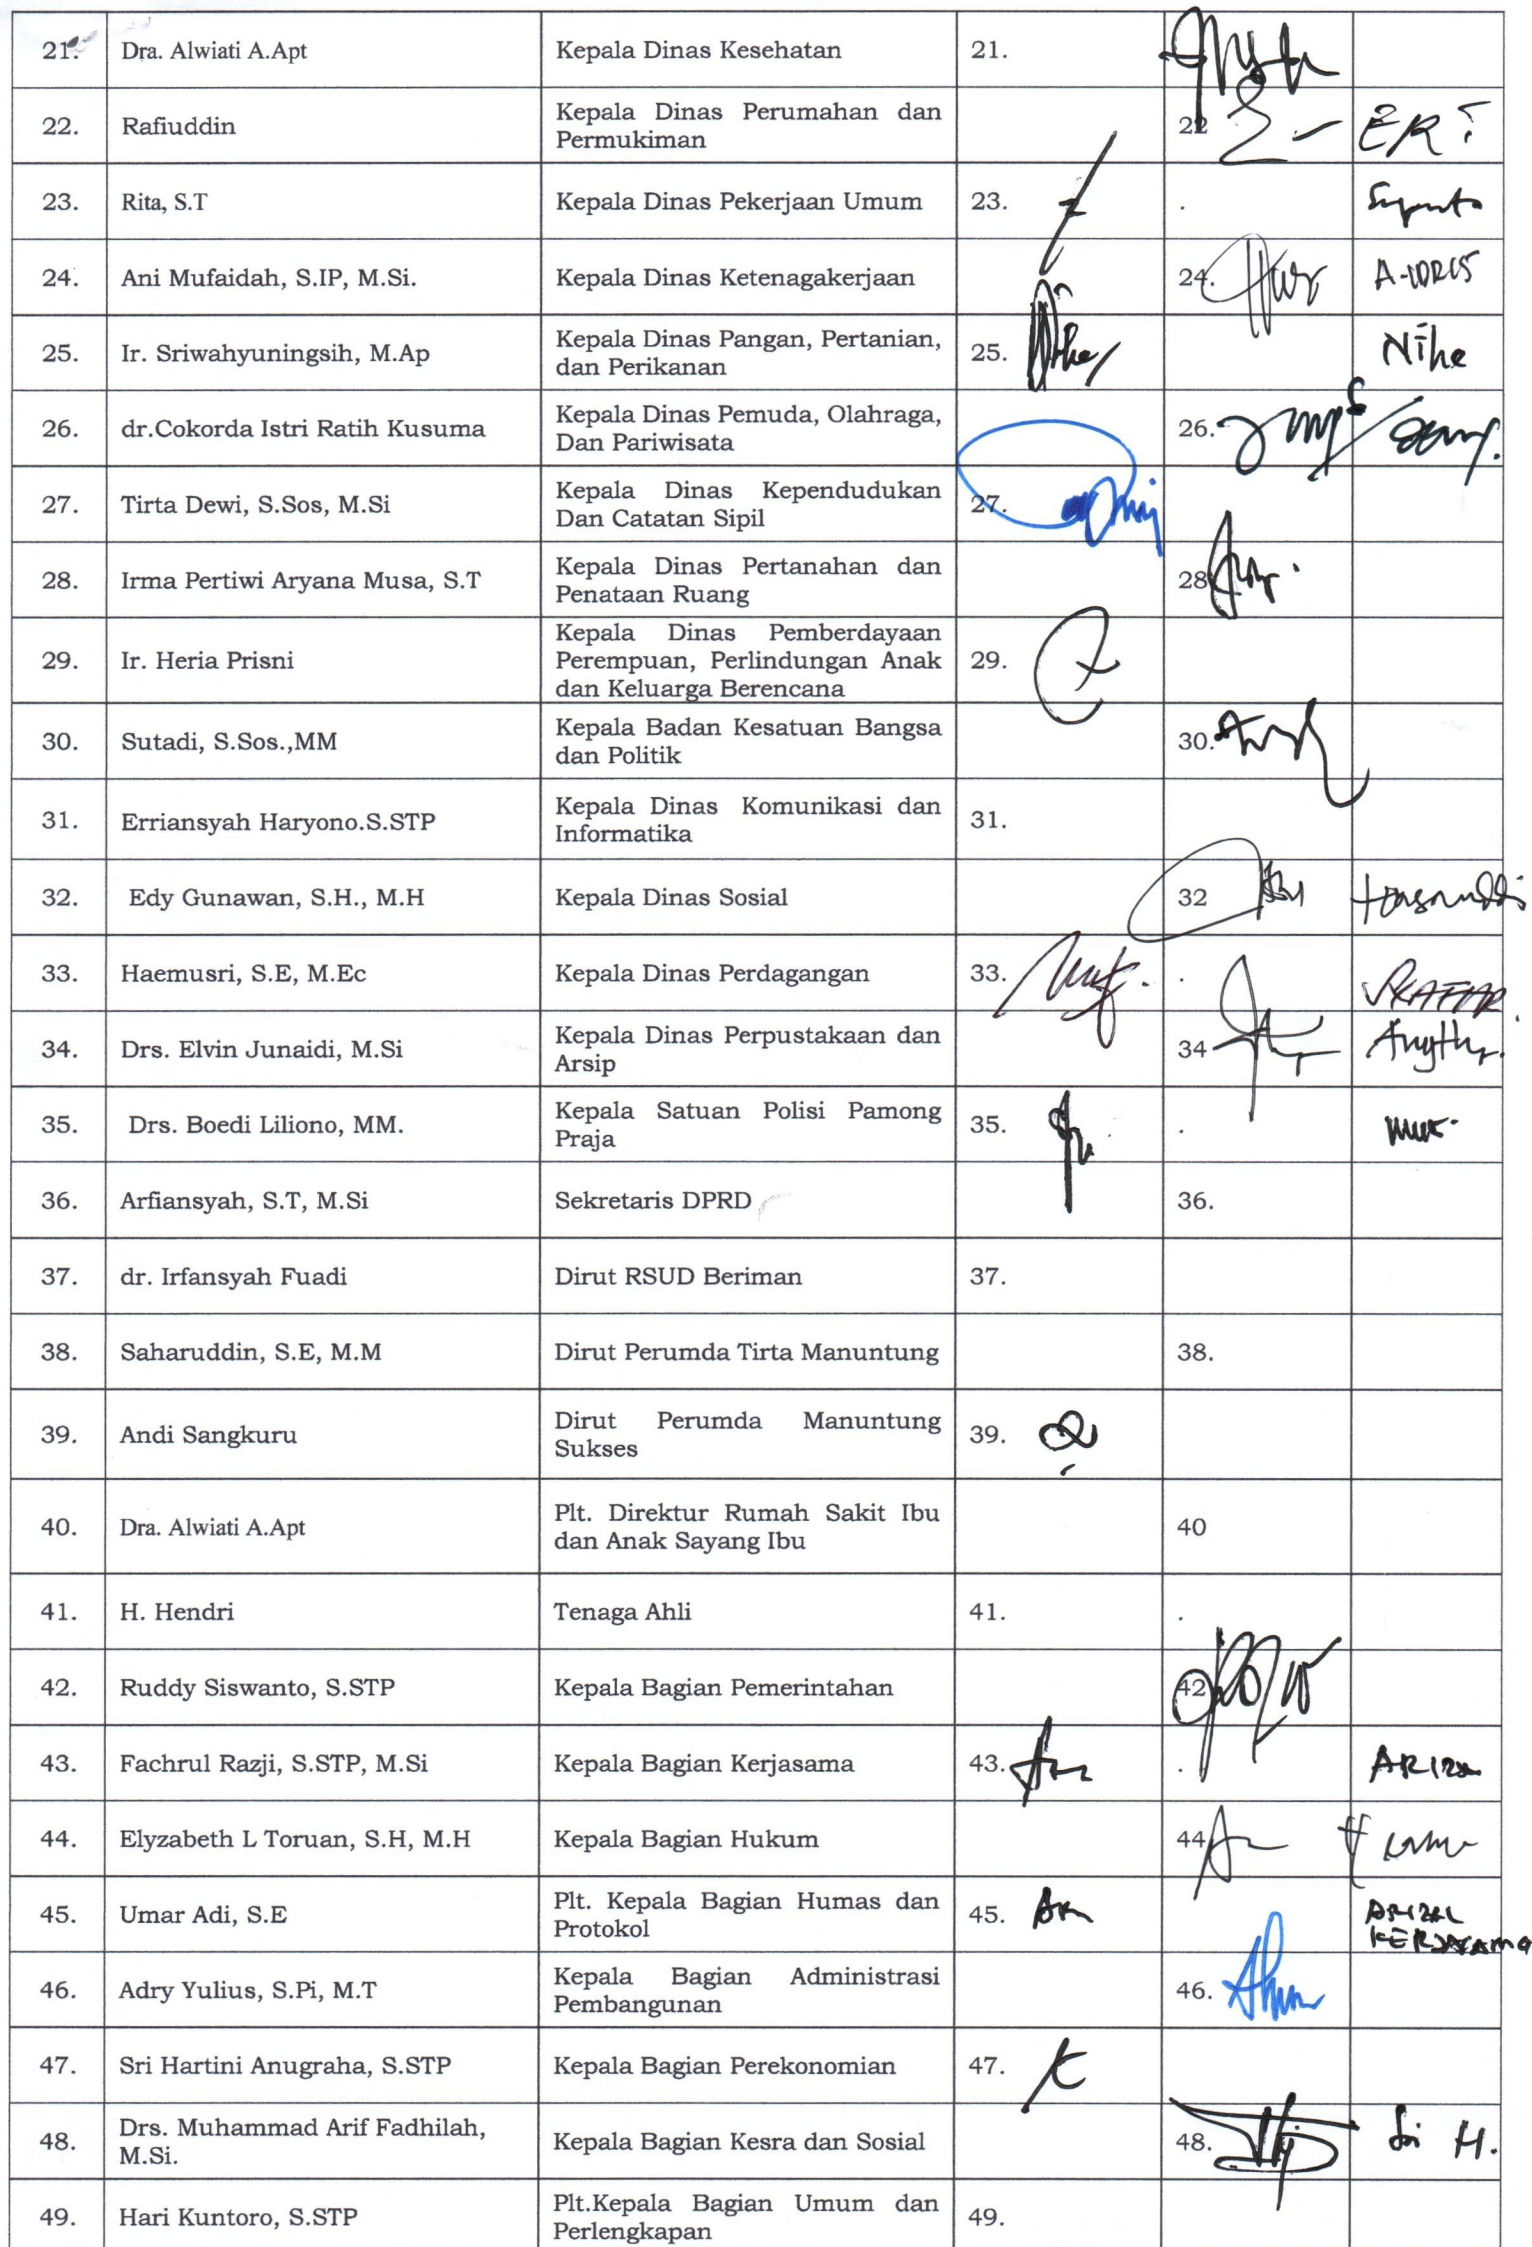 21. Dra. Alwiati A.Apt Kepala Dinas Kesehatan 21.
22. Rafiuddin Kepala Dinas Perumahan dan
Permukiman 22
23. Rita, S.T Kepala Dinas Pekerjaan Umum 23. .
24. Ani Mufaidah, S.IP, M.Si. Kepala Dinas Ketenagakerjaan 24. A-IDRIS
25. Ir. Sriwahyuningsih, M.Ap Kepala Dinas Pangan, Pertanian,
dan Perikanan 25. Nihe
26. dr.Cokorda Istri Ratih Kusuma Kepala Dinas Pemuda, Olahraga,
Dan Pariwisata 26.
27. Tirta Dewi, S.Sos, M.Si Kepala Dinas Kependudukan
Dan Catatan Sipil 27.
28. Irma Pertiwi Aryana Musa, S.T Kepala Dinas Pertanahan dan
Penataan Ruang 28
29. Ir. Heria Prisni Kepala Dinas Pemberdayaan
Perempuan, Perlindungan Anak
dan Keluarga Berencana 29.
30. Sutadi, S.Sos.,MM Kepala Badan Kesatuan Bangsa
dan Politik 30.
31. Erriansyah Haryono.S.STP Kepala Dinas Komunikasi dan
Informatika 31.
32. Edy Gunawan, S.H., M.H Kepala Dinas Sosial 32
33. Haemusri, S.E, M.Ec Kepala Dinas Perdagangan 33. .
34. Drs. Elvin Junaidi, M.Si Kepala Dinas Perpustakaan dan
Arsip 34
35. Drs. Boedi Liliono, MM. Kepala Satuan Polisi Pamong
Praja 35. .
36. Arfiansyah, S.T, M.Si Sekretaris DPRD 36.
37. dr. Irfansyah Fuadi Dirut RSUD Beriman 37.
38. Saharuddin, S.E, M.M Dirut Perumda Tirta Manuntung 38.
39. Andi Sangkuru Dirut Perumda Manuntung
Sukses 39.
40. Dra. Alwiati A.Apt Plt. Direktur Rumah Sakit Ibu
dan Anak Sayang Ibu 40
41. H. Hendri Tenaga Ahli 41. .
42. Ruddy Siswanto, S.STP Kepala Bagian Pemerintahan 42
43. Fachrul Razji, S.STP, M.Si Kepala Bagian Kerjasama 43. .
44. Elyzabeth L Toruan, S.H, M.H Kepala Bagian Hukum 44
45. Umar Adi, S.E Plt. Kepala Bagian Humas dan
Protokol 45. ARIZAL
KERJASAMA
46. Adry Yulius, S.Pi, M.T Kepala Bagian Administrasi
Pembangunan 46.
47. Sri Hartini Anugraha, S.STP Kepala Bagian Perekonomian 47.
48. Drs. Muhammad Arif Fadhilah,
M.Si. Kepala Bagian Kesra dan Sosial 48. Sri H.
49. Hari Kuntoro, S.STP Plt.Kepala Bagian Umum dan
Perlengkapan 49.